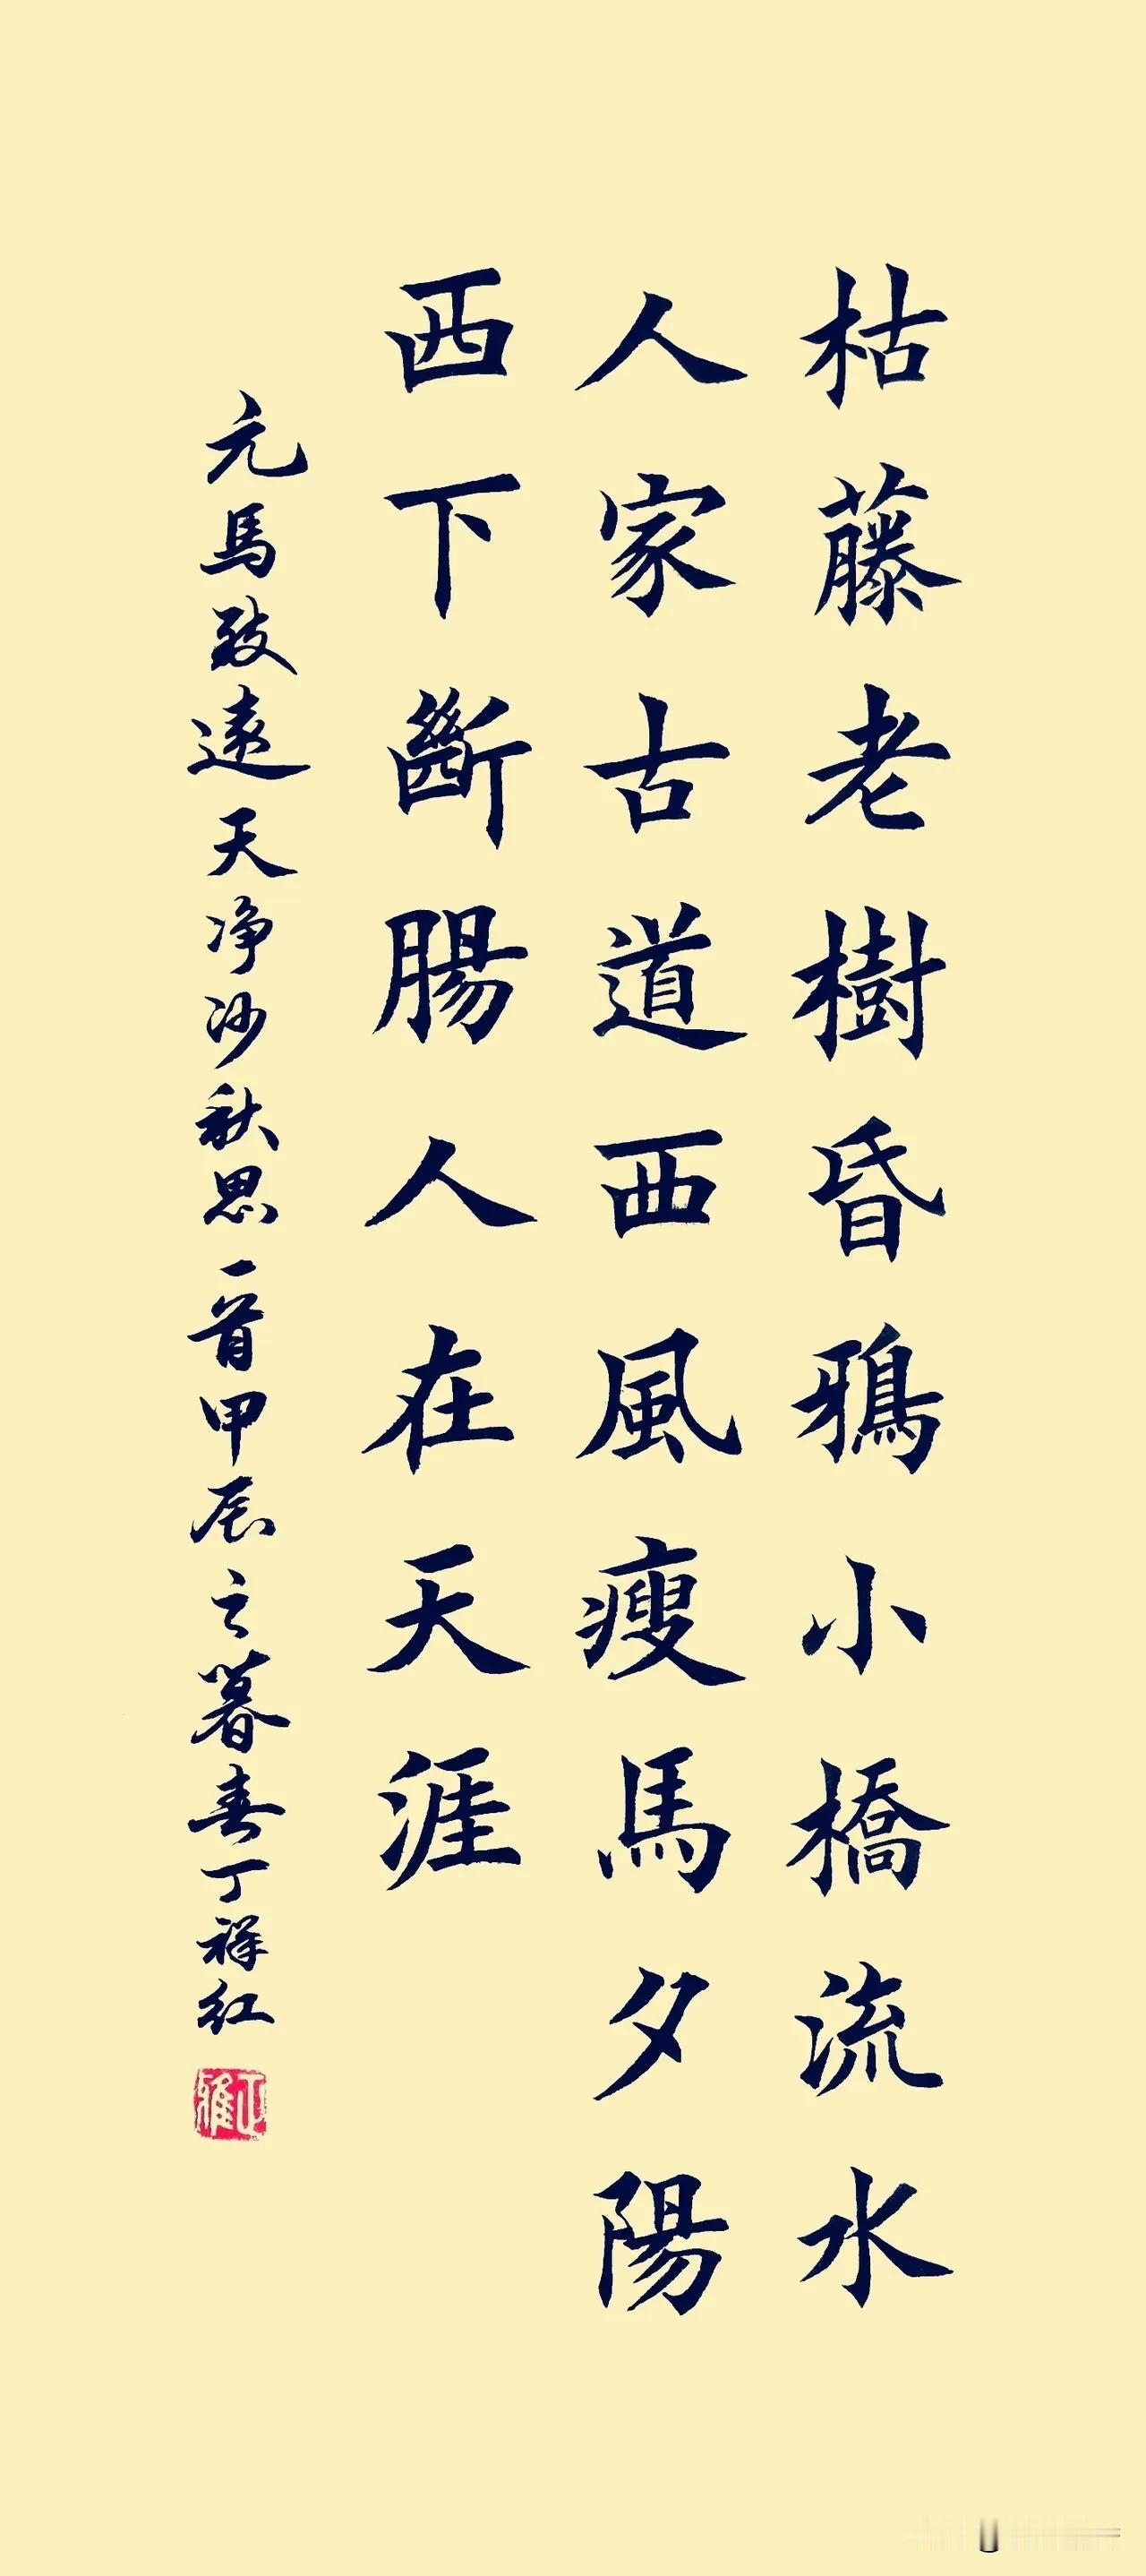 枯藤老樹昏鴉小橋流水
人家古道西風瘦馬夕陽
西下斷腸人在天涯
元馬致遠天净沙秋思一首甲辰之暮春丁祥红